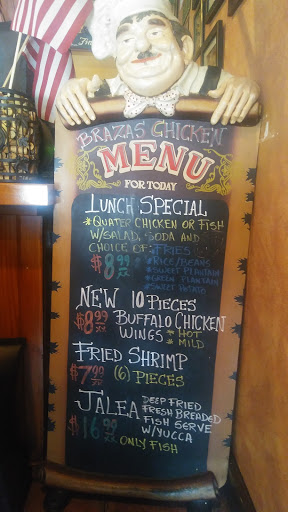 BRAZAS CHICKEN
MENU
FOR TODAY
LUNCH SPECIAL
*QUATER CHICKEN OR FISH
W/SALAD, SODA AND
CHOICE OF: *FRIES
$8.99 *RICE/BEANS
*SWEET PLANTAIN
*GREEN PLANTAIN
*SWEET POTATO
NEW 10 PIECES
$8.99 BUFFALO CHICKEN
WINGS * HOT
* MILD
FRIED SHRIMP
$7.99 (6) PIECES
JALEA DEEP FRIED
FRESH BREADED
FISH SERVE
$16.99 W/YUCCA
ONLY FISH